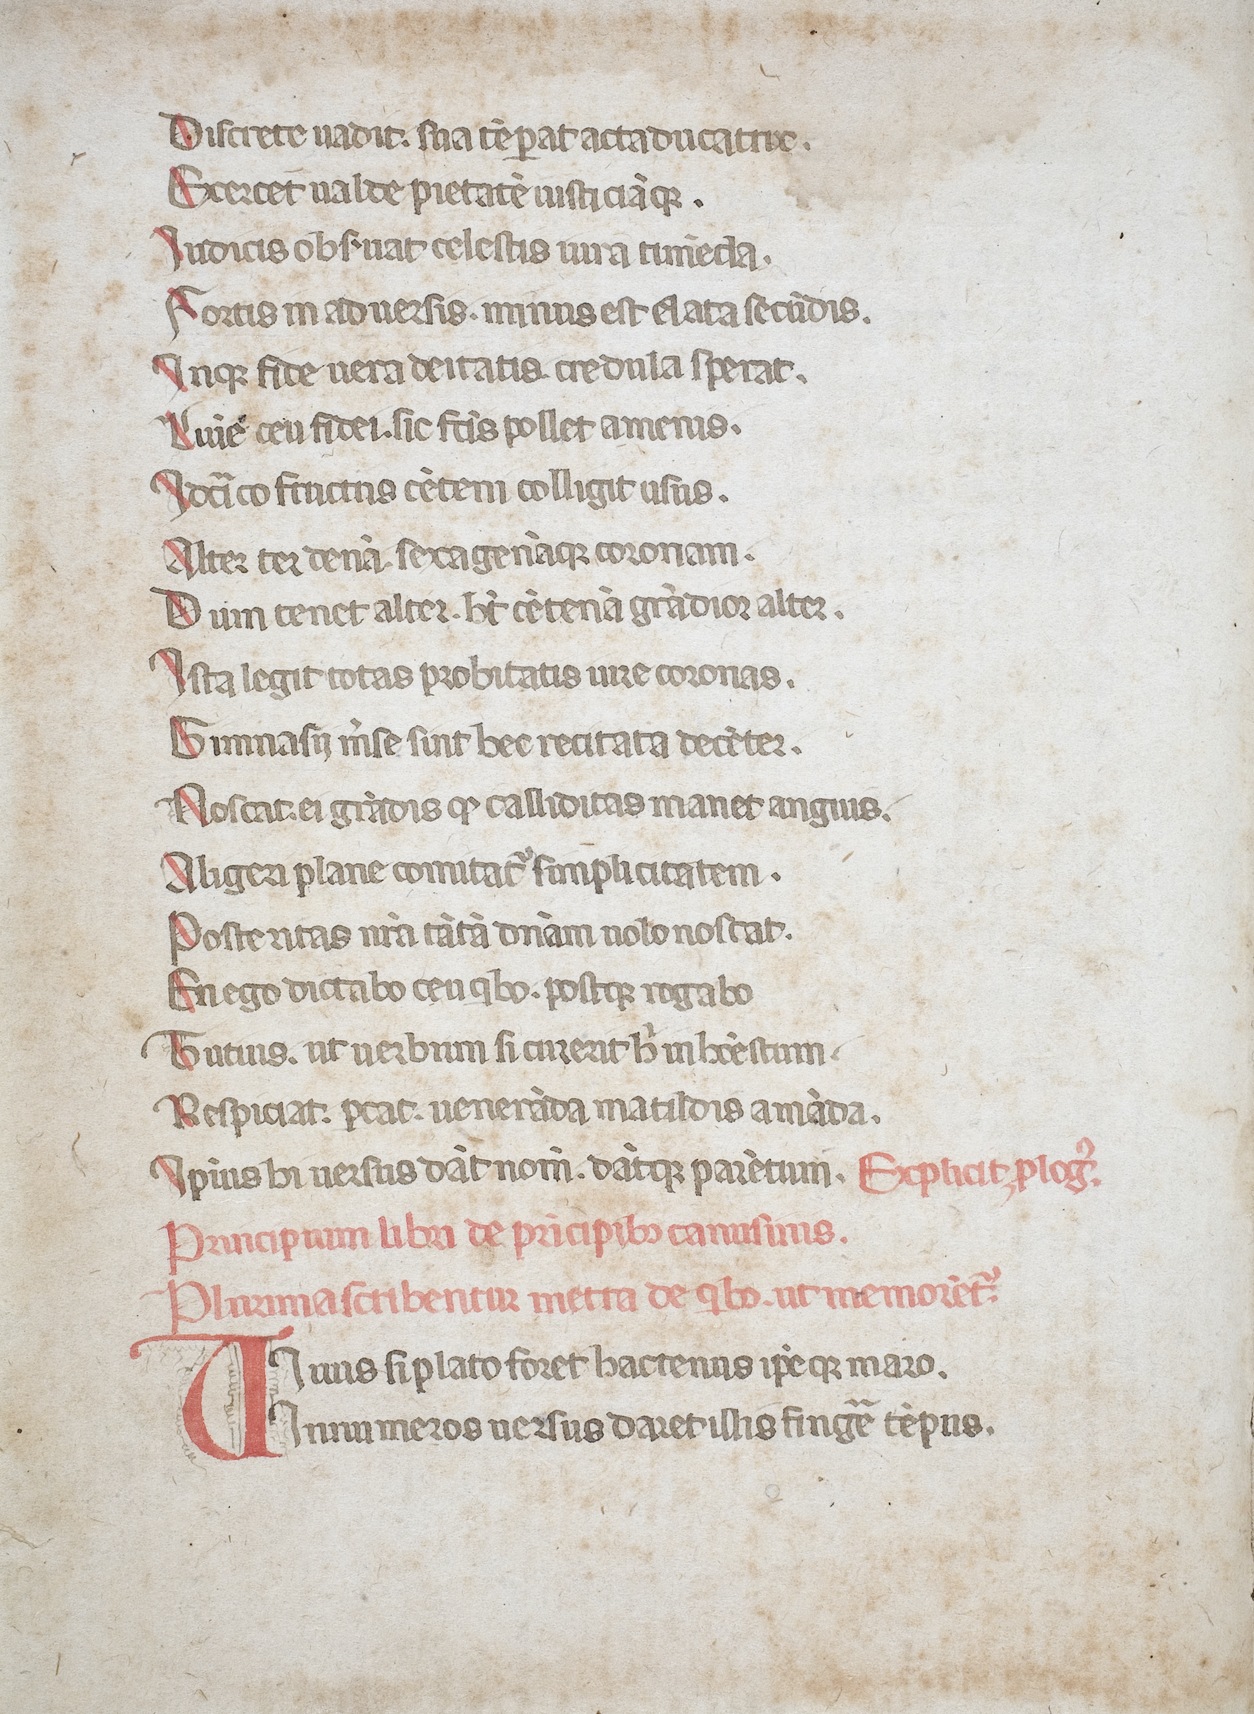 Discrete uadit. sua tēp̄at acta ducatrix.
Exercet ualde pietatē iusticiāqꝫ.
Iudicis obs̓uat celestis iura timēda.
Fortis in aduersis. minus est elata secūdis.
Inqꝫ fide uera deitatis credula sperat.
Luīe ceu fidei. sic fc̄is pollet amenis.
Idc̄ico fructus cētem colligit usus.
Alter ter denā. sexagenāqꝫ coronam.
Dum tenet alter. ht̄ cētenā grādior alter.
Ista legit totas probitatis iure coronas.
Gimnasij m̄se sint hec recitata decēter.
Noscat. ei grādis qꝫ calliditas manet anguis.
Aligeri plane comitat᷒ simplicitatem.
Posteritas nr̄a tātā dn̄am uolo noscat.
En ego dictabo ceu qbo. postqꝫ rogabo
Tutius. ut uerbum si curerit h̄ inhōestum.
Respiciat. pcat. uenerāda matildis amāda.
Ipīus hi uersus dāt nom̄. dātqꝫ parētum. Explicit plog᷒.
Principium libri de pricipibꝫ canusinis.
Plurima scribentur metra de qbꝫ. ut memorēt᷒.
VIuus si plato foret hactenus ip̄eqꝫ maro.
Innumeros uersus daret illis fingē tēpus.